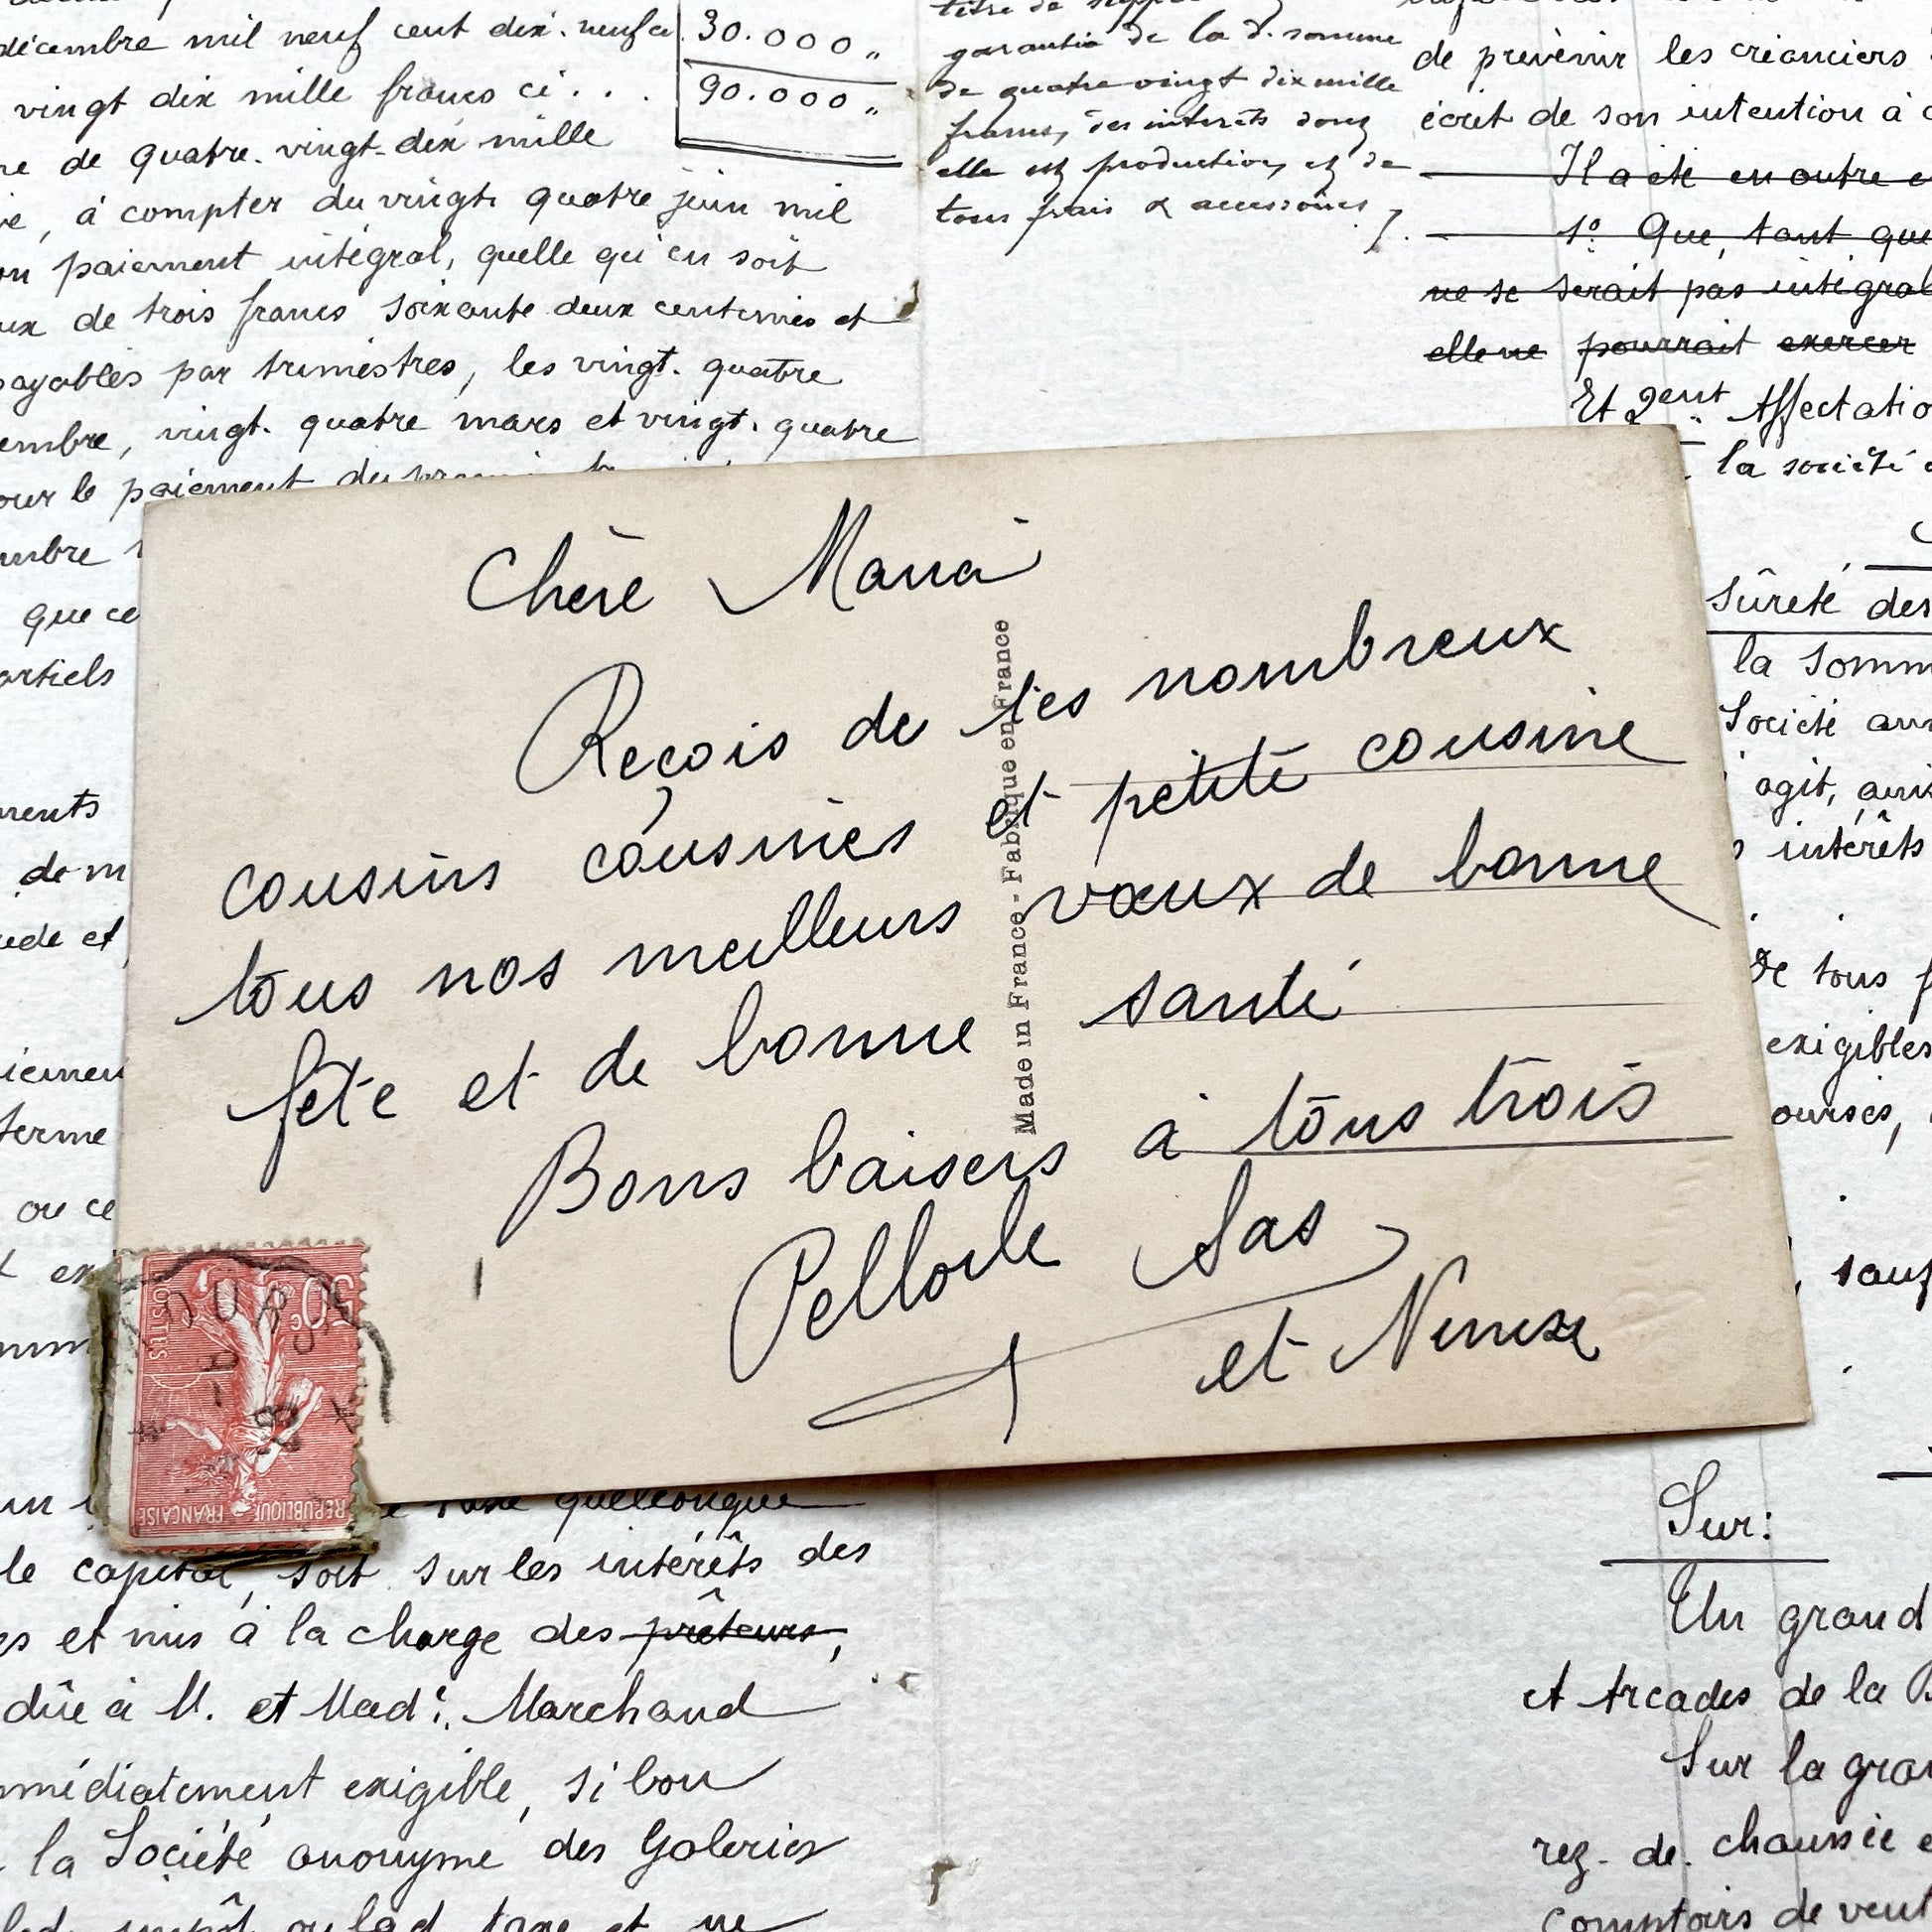 décembre mil neuf cent dix-neuf ci
30.000 "
vingt dix mille francs ci . . .
90.000 "
de quatre-vingt-dix mille
, à compter du vingt quatre juin mil
paiement intégral, quelle qu'en soit
de trois francs soixante deux centimes et
payables par trimestres, les vingt-quatre
embre, vingt-quatre mars et vingt-quatre
our le paiement du
mbre
que ce
artiels
ments
de m
et
terme
ou ce
quelconque
le capital, soit sur les intérêts des
es et mis à la charge des prêteurs,
dûe à M. et Mad.e Marchand
mmédiatement exigible, si bon
la Société anonyme des Galeries
impôt ou lad. taxe et ne
titre de
garantie de la d. somme
de quatre vingt dix mille
francs, des intérêts dont
elle est production, et de
tous frais & accessoires
de prévenir les créanciers
écrit de son intention à
Il a été en outre
1º Que, tant que
ne se serait pas intégral
elle ne pourrait exercer
Et 2ent Affectatio
la société
Sûreté des
la somm
Société
agit,
intérêts
de tous
exigibles
ourses,
, sauf
Sur:
Un grand
et Arcades de la
Sur la gran
rez-de-chaussée
comptoirs de vent
Chère Maria
Reçois de tes nombreux
cousins cousines et petite cousine
tous nos meilleurs vœux de bonne
fête et de bonne santé
Bons baisers à tous trois
Sas
et
Made in France - Fabriqué en France
50c
POSTES
REPUBLIQUE FRANÇAISE